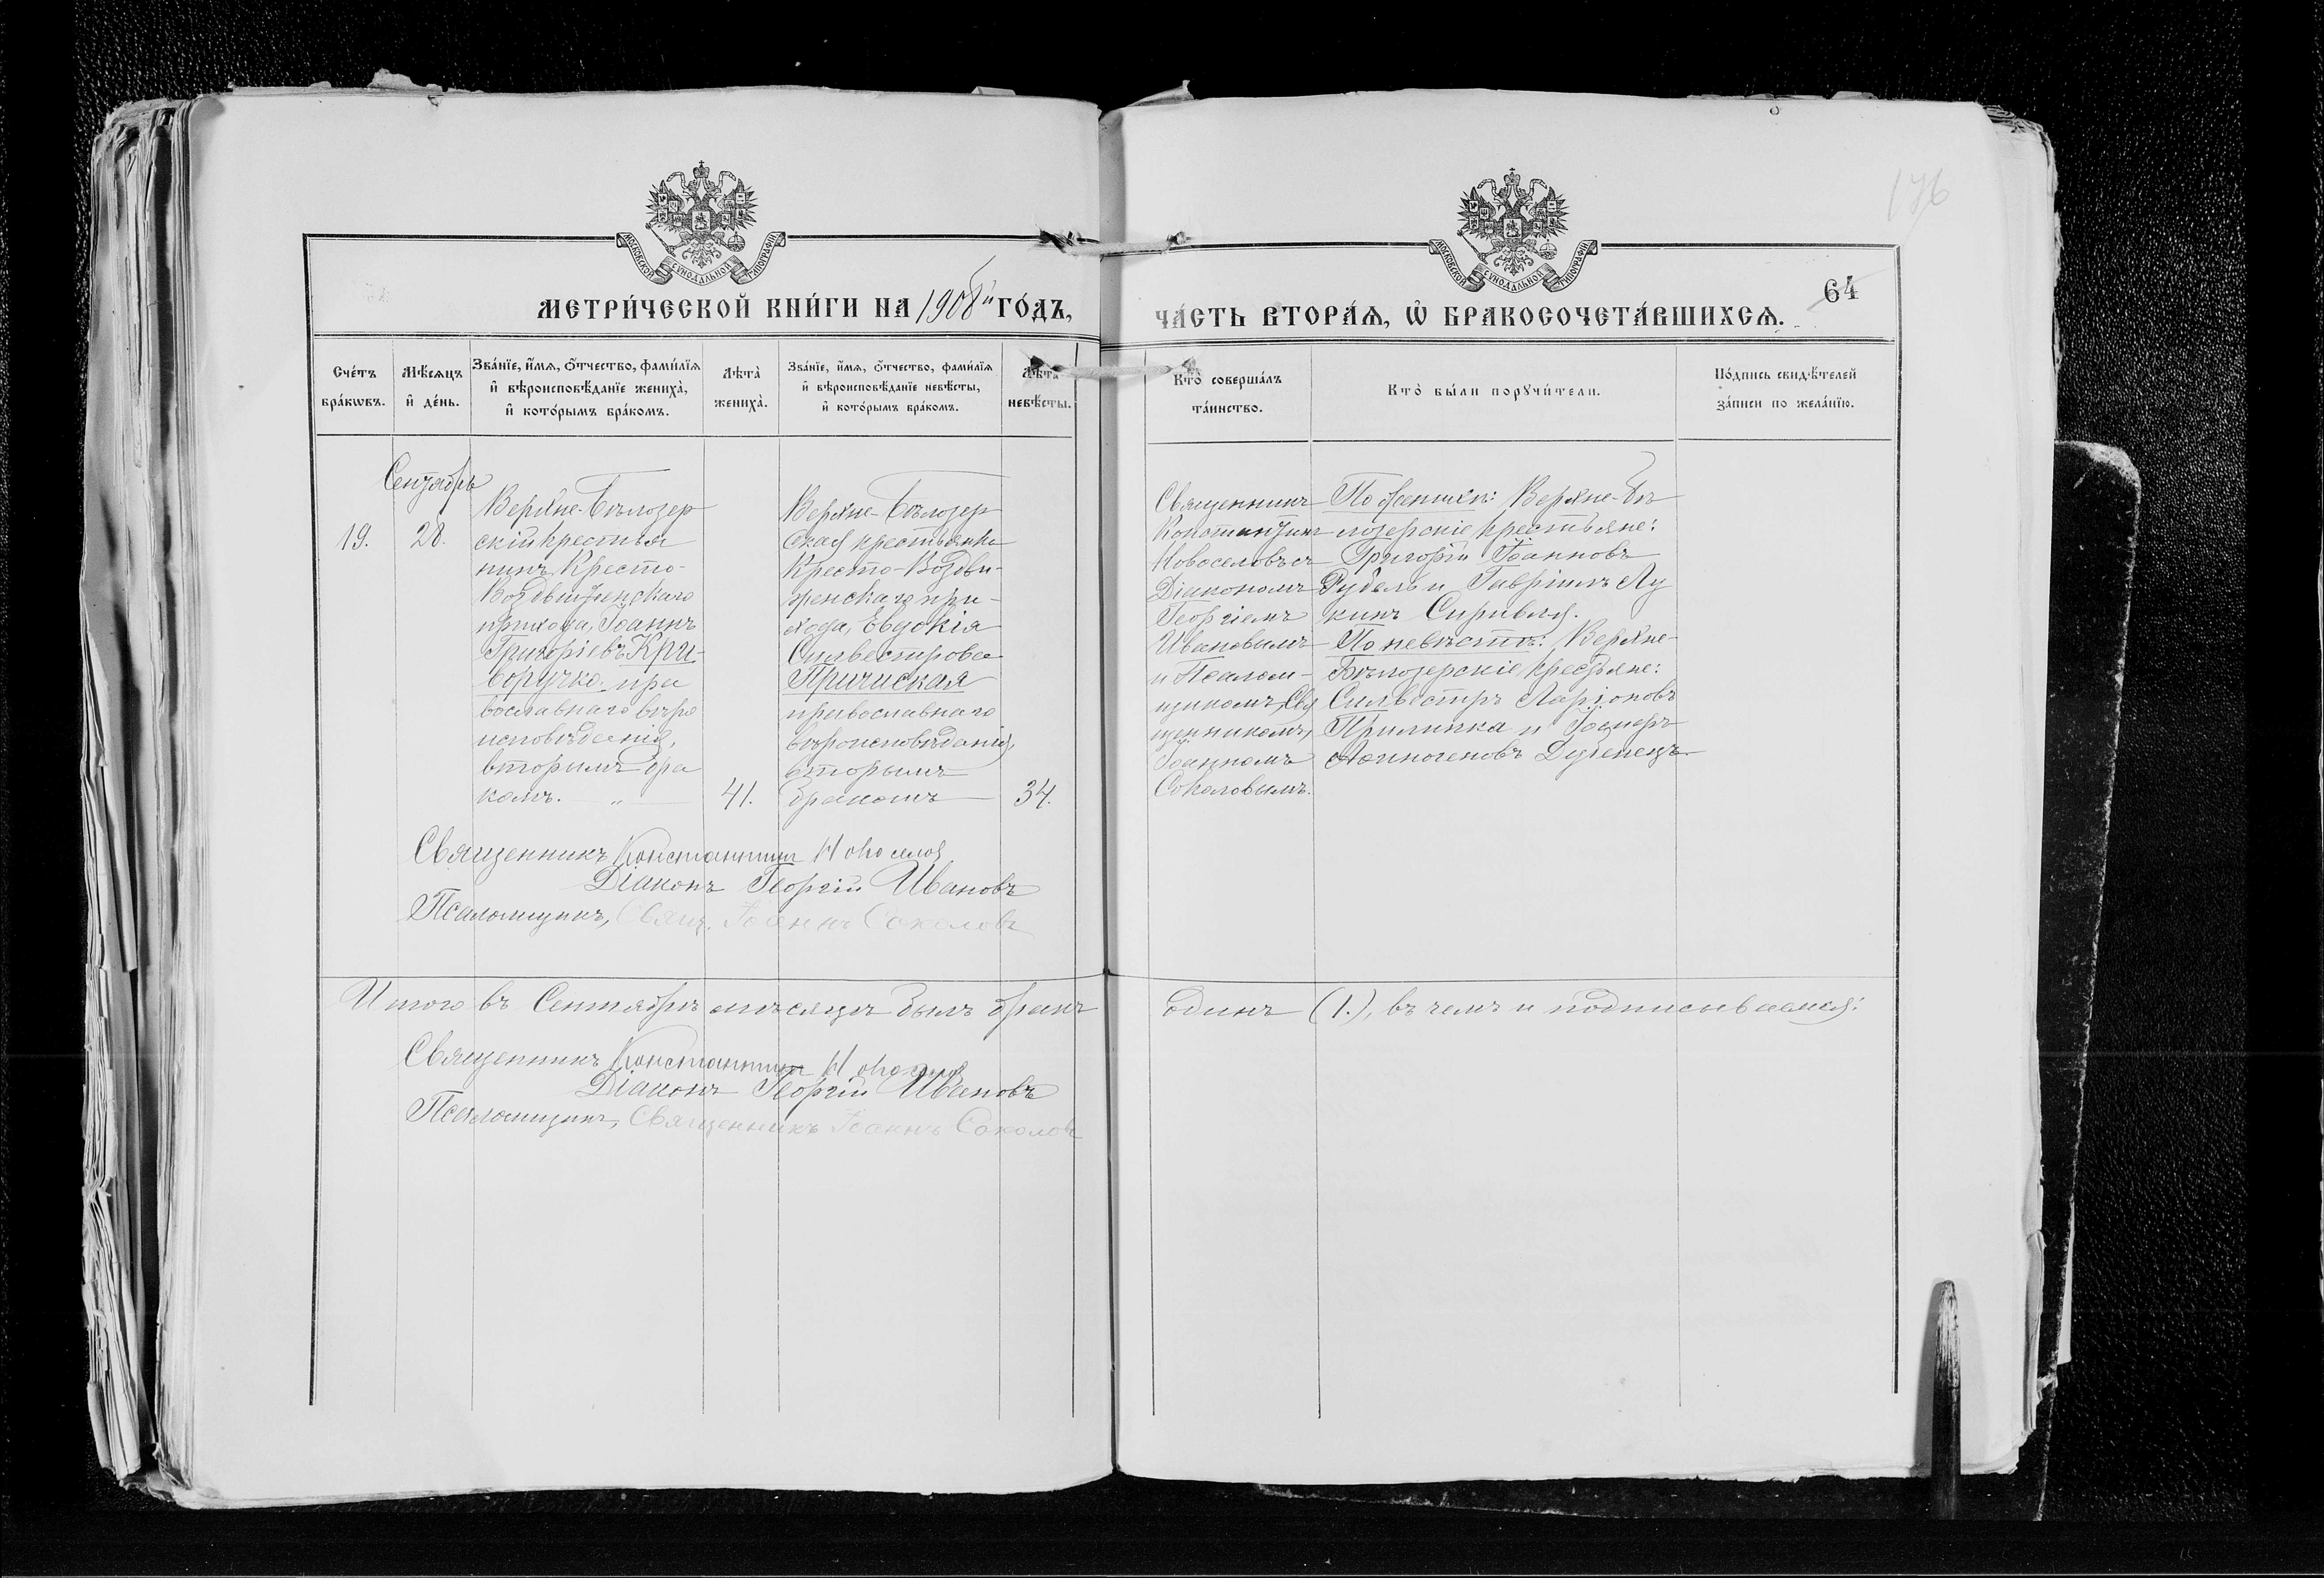 176
МОСКОВСКОЙ СѴНОДАЛЬНОЙ ТИПОГРАФІИ
МЕТРИ́ЧЕСКОЙ КНИ́ГИ НА 1908й ГО́ДЪ,
МОСКОВСКОЙ СѴНОДАЛЬНОЙ ТИПОГРАФІИ
ЧА́СТЬ ВТОРА́Я, Ѿ БРАКОСОЧЕТА́ВШИХСЯ.
64
Сче́тъ
бра́кѡвъ.
Мѣ́сяцъ
и҆ де́нь.
Зва́нїе, и҆́мя, ѻ҆́тчество, фами́лїя
и҆ вѣроисповѣ́данїе жениха̀,
и҆ кото́рымъ бра́комъ.
Лѣта̀
жениха̀.
Зва́нїе, и҆́мя, ѻ҆́тчество, фами́лїя
и҆ вѣроисповѣ́данїе невѣ́сты,
и҆ кото́рымъ бра́комъ.
Лѣта̀
невѣ́сты.
Кто̀ соверша́лъ
та́инство.
Кто̀ бы́ли порꙋчи́тели.
По́дпись свидѣ́телей
за́писи по жела́нїю.
Сентябрь
19.
28.
Верхне-Бѣлозер
скій крестья
нинъ Кресто-
Воздвиженскаго
прихода, Іоаннъ
Григоріевъ Кри-
воручко пра
вославнаго вѣро
исповѣданія,
вторымъ бра
комъ. „
41.
Верхне-Бѣлозер
ская крестьянка
Кресто-Воздви-
женскаго при-
хода, Евдокія
Сильвестрова
православнаго
вѣроисповѣданія,
вторымъ
бракомъ
34.
Священникъ
Константинъ
Новоселовъ съ
Діакономъ
Георгіемъ
Ивановымъ
и Псалом-
щикомъ, Свя
щенникомъ,
Іоанномъ
Соколовымъ.
По женихѣ: Верхне-Бѣ
лозерскіе крестьяне:
Григорій Іоанновъ
и Гавріилъ Лу
кинъ
По невѣстѣ: Верхне-
Бѣлозерскіе крестьяне:
Сильвестръ Ларіоновъ
и
Священникъ Константин Новоселов
Діаконъ Георгій Ивановъ
Псаломщикъ, Свящ. Іоаннъ Соколовъ
Итого въ Сентябрѣ мѣсяцѣ былъ бракъ
одинъ (1.), въ чемъ и подписываемся:
Священникъ Константин Новоселов
Діаконъ Георгій Ивановъ
Псаломщикъ, Священникъ Іоаннъ Соколовъ